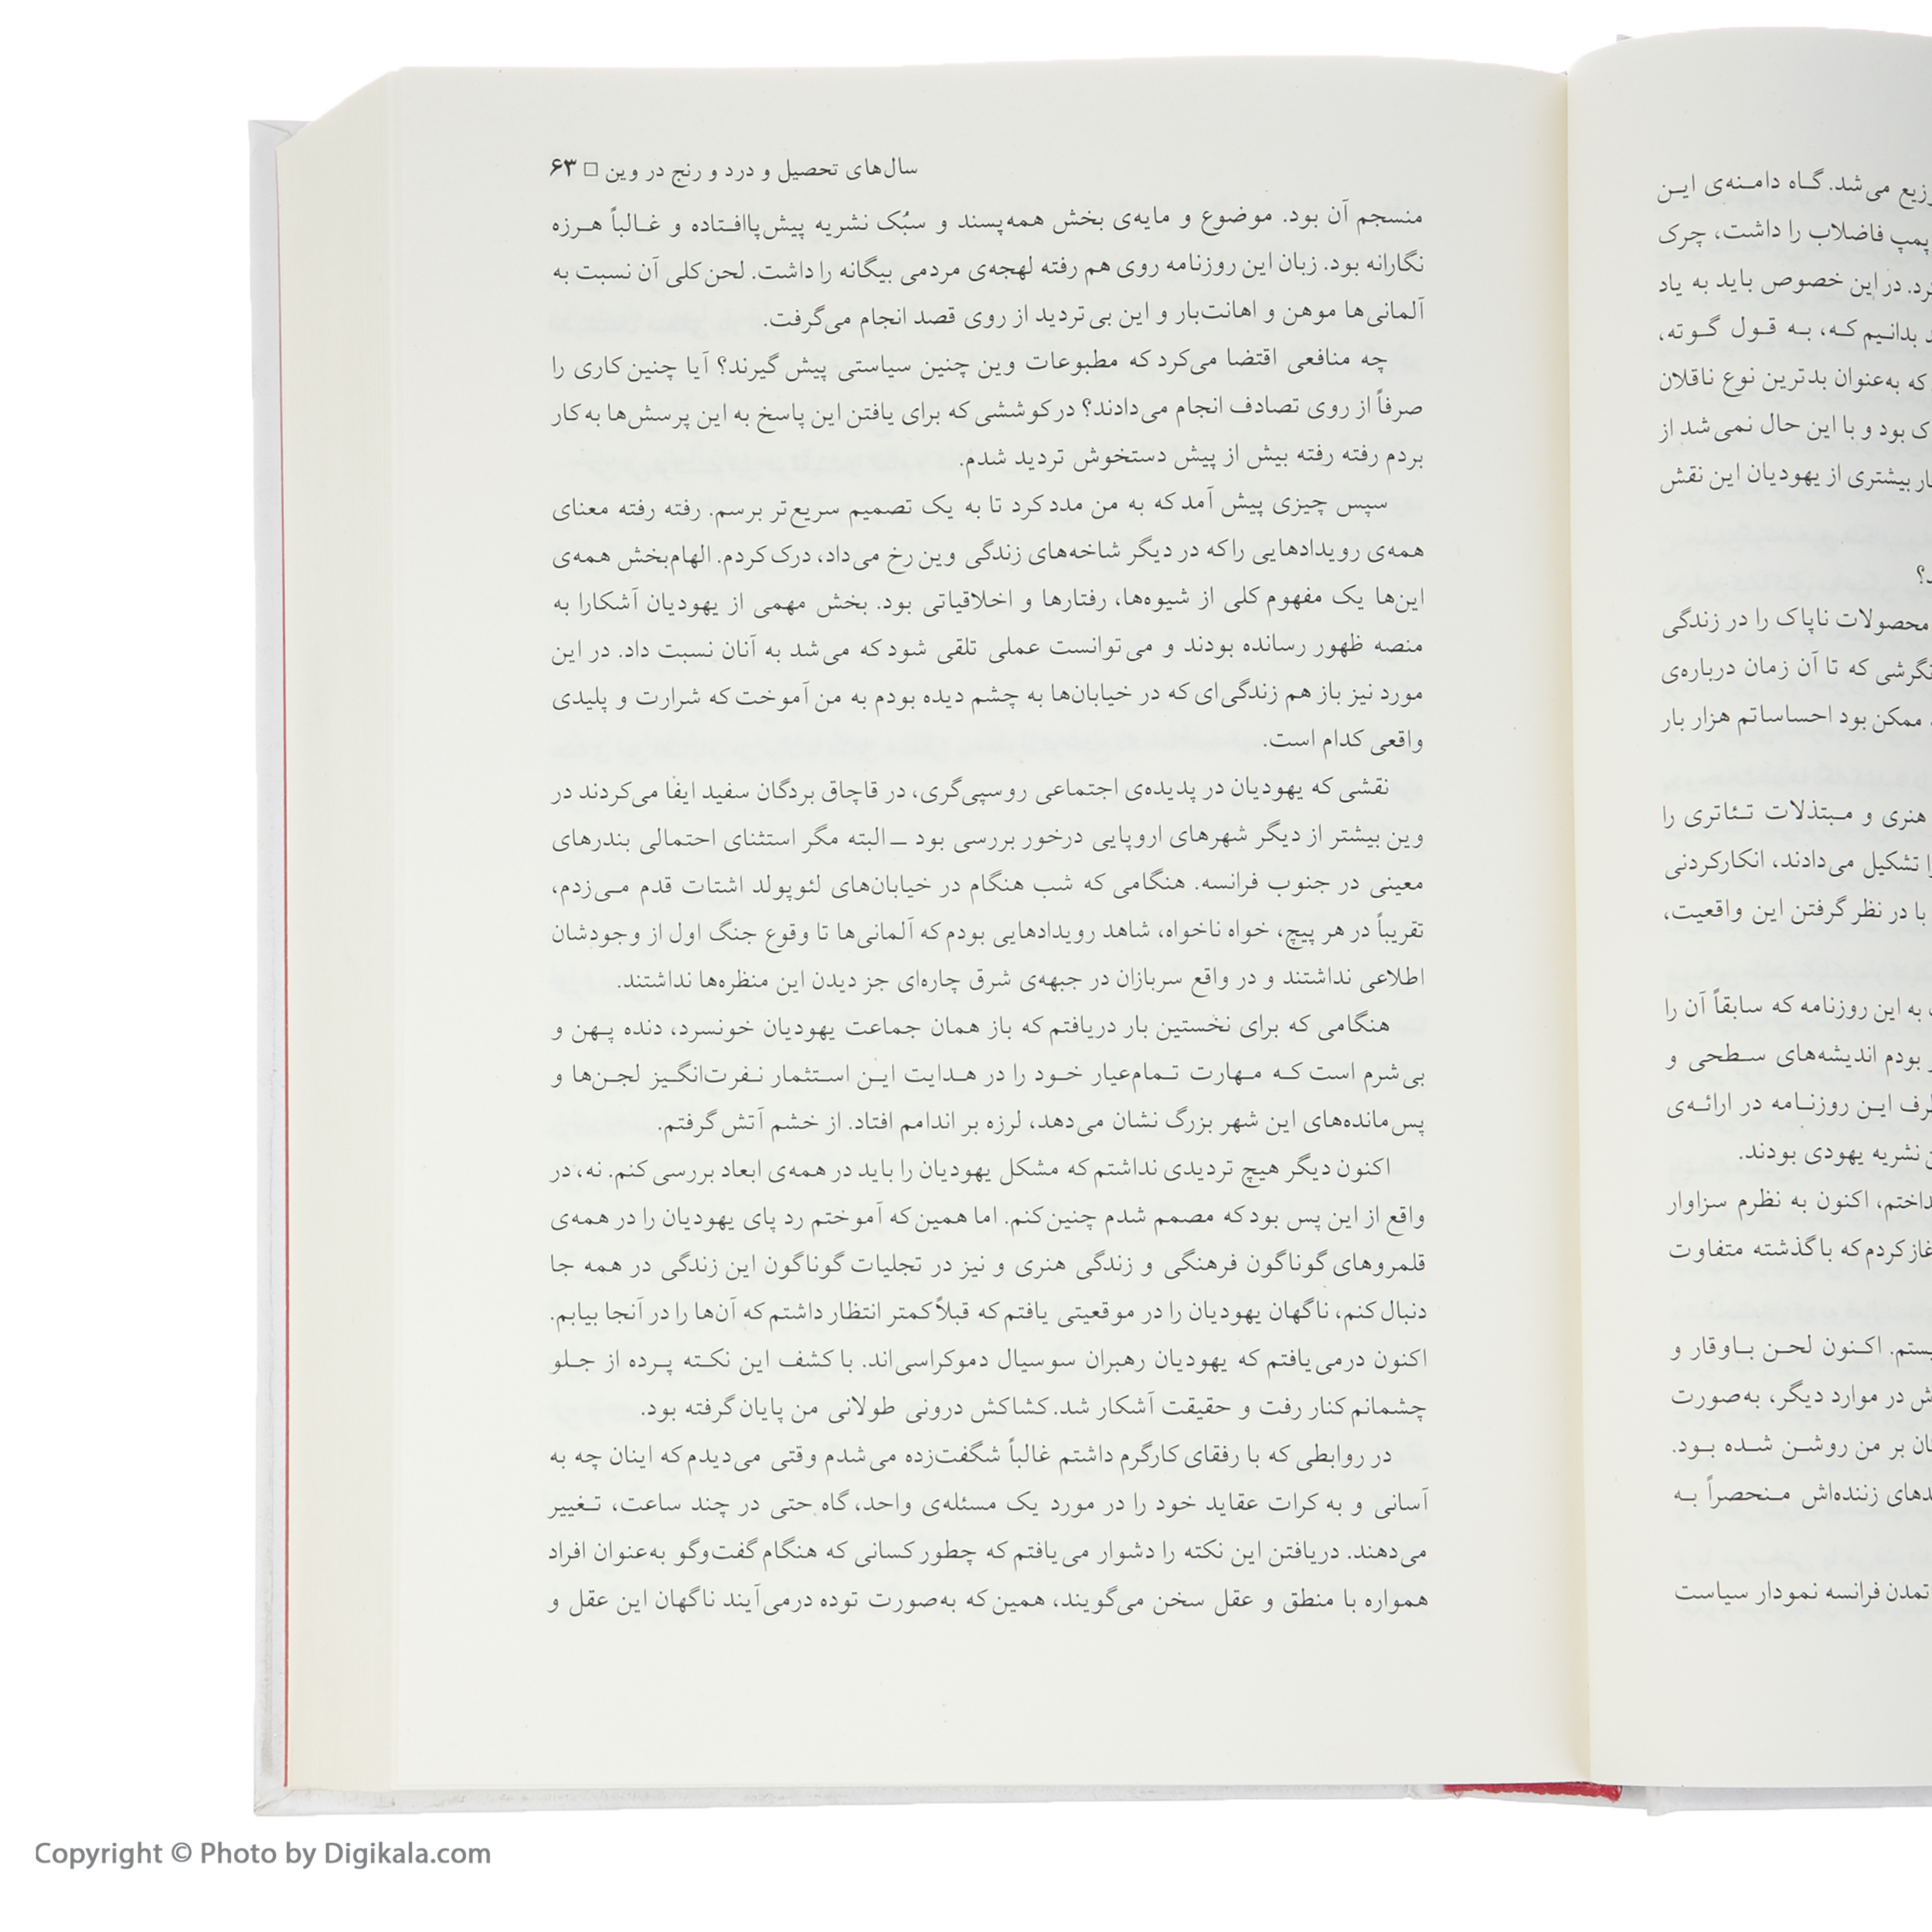 می‌شد. گاه دامنه‌ی این
پمپ فاضلاب را داشت، چرک
در این خصوص باید به یاد
بدانیم که، به قول گوته،
که به‌عنوان بدترین نوع ناقلان
بود و با این حال نمی‌شد از
بیشتری از یهودیان این نقش
محصولات ناپاک را در زندگی
نگرشی که تا آن زمان درباره‌ی
ممکن بود احساساتم هزار بار
هنری و مبتذلات تئاتری را
تشکیل می‌دادند، انکارکردنی
با در نظر گرفتن این واقعیت،
به این روزنامه که سابقاً آن را
بودم اندیشه‌های سطحی و
این روزنامه در ارائه‌ی
نشریه یهودی بودند.
اکنون به نظرم سزاوار
کردم که با گذشته متفاوت
اکنون لحن باوقار و
در موارد دیگر، به‌صورت
بر من روشن شده بود.
زننده‌اش منحصراً به
تمدن فرانسه نمودار سیاست
سال‌های تحصیل و درد و رنج در وین □ ۶۳
منسجم آن بود. موضوع و مایه‌ی بخش همه‌پسند و سبُک نشریه پیش‌پاافتاده و غالباً هرزه
نگارانه بود. زبان این روزنامه روی هم رفته لهجه‌ی مردمی بیگانه را داشت. لحن کلی آن نسبت به
آلمانی‌ها موهن و اهانت‌بار و این بی‌تردید از روی قصد انجام می‌گرفت.
چه منافعی اقتضا می‌کرد که مطبوعات وین چنین سیاستی پیش گیرند؟ آیا چنین کاری را
صرفاً از روی تصادف انجام می‌دادند؟ در کوششی که برای یافتن این پاسخ به این پرسش‌ها به کار
بردم رفته رفته بیش از پیش دستخوش تردید شدم.
سپس چیزی پیش آمد که به من مدد کرد تا به یک تصمیم سریع‌تر برسم. رفته رفته معنای
همه‌ی رویدادهایی را که در دیگر شاخه‌های زندگی وین رخ می‌داد، درک کردم. الهام‌بخش همه‌ی
این‌ها یک مفهوم کلی از شیوه‌ها، رفتارها و اخلاقیاتی بود. بخش مهمی از یهودیان آشکارا به
منصه ظهور رسانده بودند و می‌توانست عملی تلقی شود که می‌شد به آنان نسبت داد. در این
مورد نیز باز هم زندگی‌ای که در خیابان‌ها به چشم دیده بودم به من آموخت که شرارت و پلیدی
واقعی کدام است.
نقشی که یهودیان در پدیده‌ی اجتماعی روسپی‌گری، در قاچاق بردگان سفید ایفا می‌کردند در
وین بیشتر از دیگر شهرهای اروپایی درخور بررسی بود ــ البته مگر استثنای احتمالی بندرهای
معینی در جنوب فرانسه. هنگامی که شب هنگام در خیابان‌های لئوپولد اشتات قدم می‌زدم،
تقریباً در هر پیچ، خواه ناخواه، شاهد رویدادهایی بودم که آلمانی‌ها تا وقوع جنگ اول از وجودشان
اطلاعی نداشتند و در واقع سربازان در جبهه‌ی شرق چاره‌ای جز دیدن این منظره‌ها نداشتند.
هنگامی که برای نخستین بار دریافتم که باز همان جماعت یهودیان خونسرد، دنده پهن و
بی‌شرم است که مهارت تمام‌عیار خود را در هدایت این استثمار نفرت‌انگیز لجن‌ها و
پس‌مانده‌های این شهر بزرگ نشان می‌دهد، لرزه بر اندامم افتاد. از خشم آتش گرفتم.
اکنون دیگر هیچ تردیدی نداشتم که مشکل یهودیان را باید در همه‌ی ابعاد بررسی کنم. نه، در
واقع از این پس بود که مصمم شدم چنین کنم. اما همین که آموختم رد پای یهودیان را در همه‌ی
قلمروهای گوناگون فرهنگی و زندگی هنری و نیز در تجلیات گوناگون این زندگی در همه جا
دنبال کنم، ناگهان یهودیان را در موقعیتی یافتم که قبلاً کمتر انتظار داشتم که آن‌ها را در آنجا بیابم.
اکنون درمی‌یافتم که یهودیان رهبران سوسیال دموکراسی‌اند. با کشف این نکته پرده از جلو
چشمانم کنار رفت و حقیقت آشکار شد. کشاکش درونی طولانی من پایان گرفته بود.
در روابطی که با رفقای کارگرم داشتم غالباً شگفت‌زده می‌شدم وقتی می‌دیدم که اینان چه به
آسانی و به کرات عقاید خود را در مورد یک مسئله‌ی واحد، گاه حتی در چند ساعت، تغییر
می‌دهند. دریافتن این نکته را دشوار می‌یافتم که چطور کسانی که هنگام گفت‌وگو به‌عنوان افراد
همواره با منطق و عقل سخن می‌گویند، همین که به‌صورت توده درمی‌آیند ناگهان این عقل و
Copyright © Photo by Digikala.com